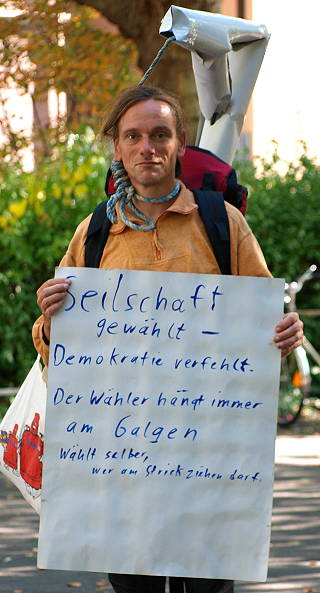 Seilschaft
gewählt –
Demokratie verfehlt.
Der Wähler hängt immer
am Galgen
Wählt selber,
wer am Strick ziehen darf.